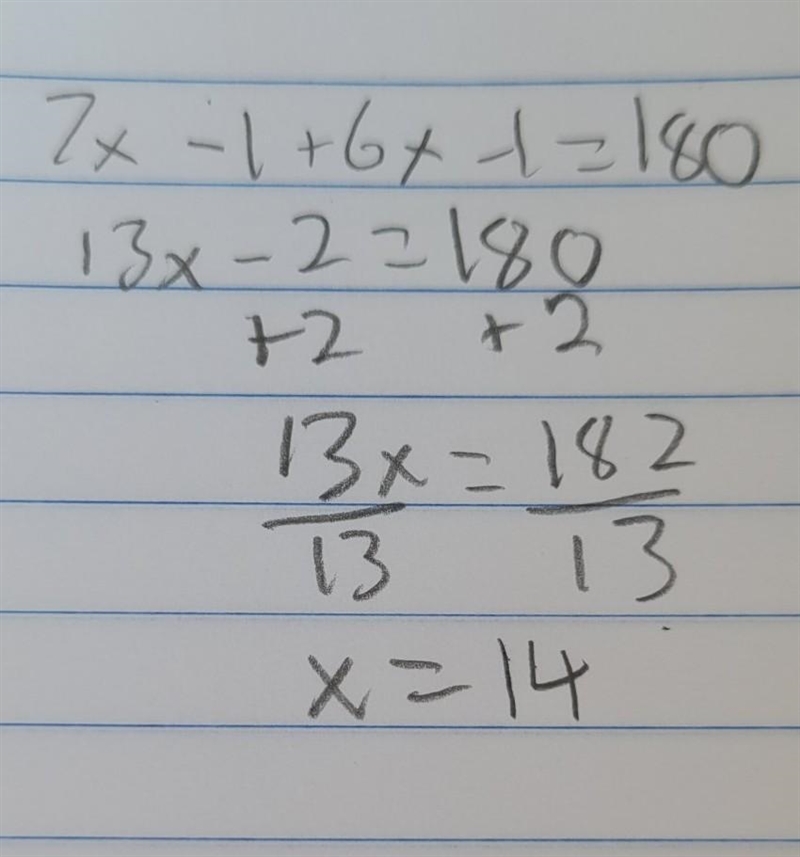 7x - 1 + 6x - 1 = 180
13x - 2 = 180
+2 +2
13x = 182
13 13
x = 14